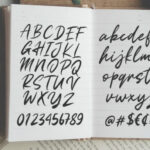 ABCDEF
GHIJKL
MNOPQ
RSTUV
WXYZ
0123456789
abcdef
hijklm
opqrst
uvwxyz
@#$€